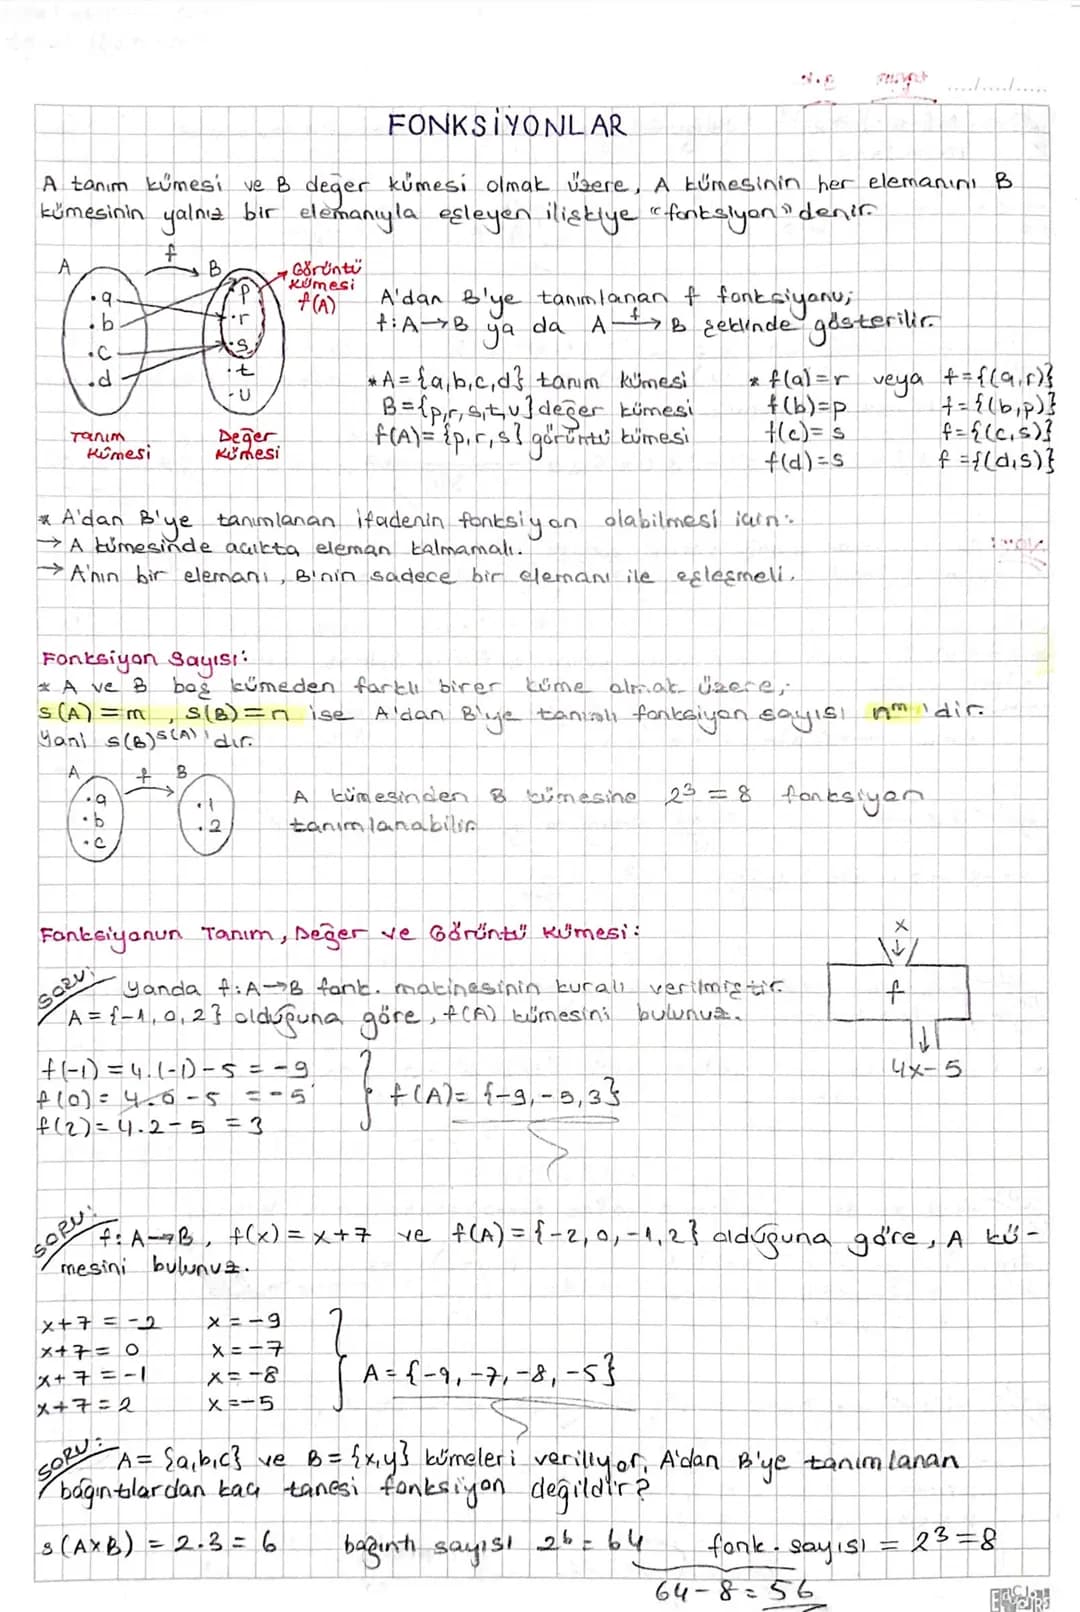 FONKSİYONLAR
A tanım kümesi ve B değer kümesi olmak üzere, A kümesinin her elemanını B
kümesinin yalnız bir elemanıyla eşleyen ilişkiye "fonksiyon" denir.
A f B
.a
.b
.c
.d
p
.r
.s
.t
.u
Görüntü
Kümesi
f(A)
Tanım
Kümesi
Değer
Kümesi
A'dan B'ye tanımlanan f fonksiyonu;
f:A→B ya da A f→ B şeklinde gösterilir.
* A={a,b,c,d} tanım kümesi
B={p,r,s,t,u} değer kümesi
f(A)={p,r,s} görüntü kümesi
* f(a)=r veya f={(a,r)}
f(b)=p f={(b,p)}
f(c)=s f={(c,s)}
f(d)=s f={(d,s)}
* A'dan B'ye tanımlanan ifadenin fonksiyon olabilmesi için:
→ A kümesinde açıkta eleman kalmamalı.
→ A'nın bir elemanı, B'nin sadece bir elemanı ile eşleşmeli.
Fonksiyon Sayısı:
* A ve B boş kümeden farklı birer küme olmak üzere;
s(A)=m, s(B)=n ise A'dan B'ye tanımlı fonksiyon sayısı nᵐ'dir.
Yani s(B)ˢ⁽ᴬ⁾'dır.
A f B
.a
.b
.c
.1
.2
A kümesinden B kümesine 2³ = 8 fonksiyon
tanımlanabilir.
Fonksiyonun Tanım, Değer ve Görüntü Kümesi:
SORU: Yanda f:A→B fonk. makinesinin kuralı verilmiştir.
A={-1,0,2} olduğuna göre, f(A) kümesini bulunuz.
x
f
4x-5
f(-1)=4.(-1)-5 = -9
f(0)= 4.0-5 = -5
f(2)=4.2-5 = 3
f(A)={-9,-5,3}
SORU: f:A→B, f(x)=x+7 ve f(A)={-2,0,-1,2} olduğuna göre, A kü-
mesini bulunuz.
x+7 = -2 x=-9
x+7= 0 x=-7
x+7=-1 x=-8
x+7=2 x=-5
A={-9,-7,-8,-5}
SORU: A={a,b,c} ve B={x,y} kümeleri veriliyor. A'dan B'ye tanımlanan
bağıntılardan kaç tanesi fonksiyon değildir?
s(AxB) = 2.3 = 6 bağıntı sayısı 2⁶ = 64 fonk. sayısı = 2³=8
64-8=56